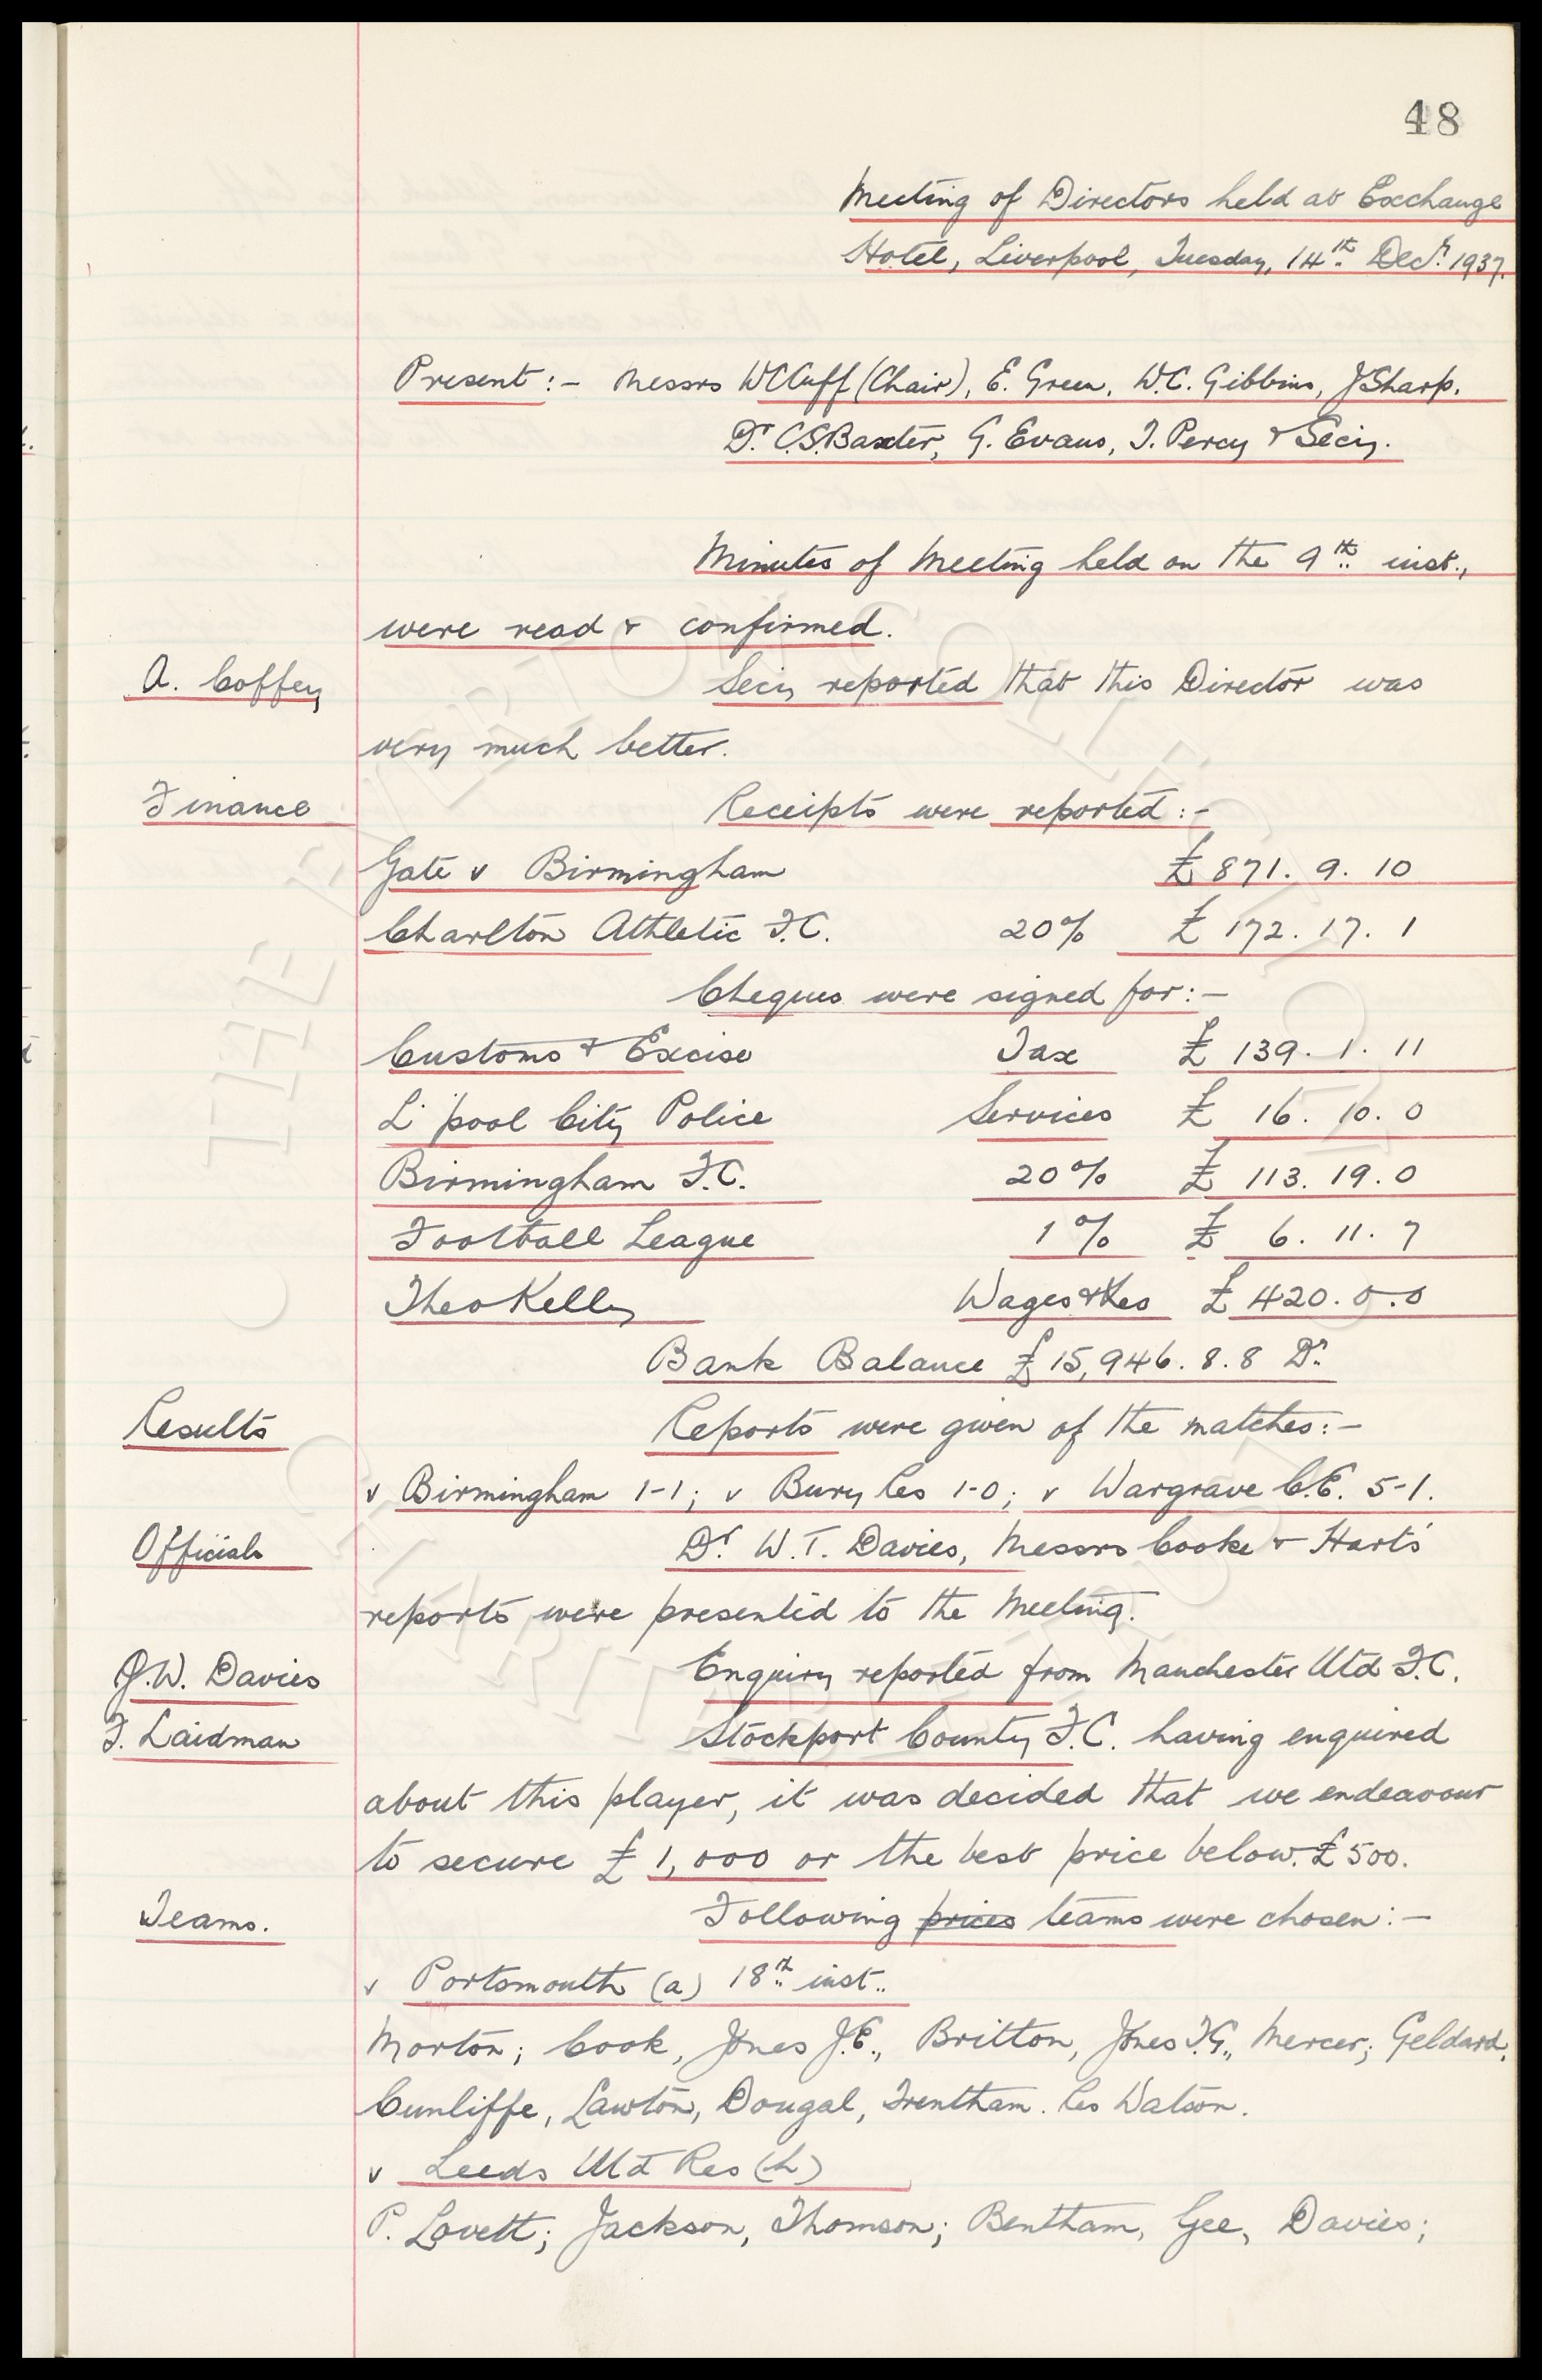 48
Meeting of Directors held at Exchange
Hotel, Liverpool, Tuesday, 14th Decr. 1937.
Present :- Messrs W C Cuff (Chair), E. Green, W.C. Gibbins, J Sharp,
Dr. C.S. Baxter, G. Evans, T. Percy & Secy.
Minutes of Meeting held on the 9th inst.,
were read & confirmed.
A. Coffey Secy reported that this Director was
very much better.
Finance Receipts were reported :-
Gate v Birmingham £871. 9. 10
Charlton Athletic F.C. 20% £172. 17. 1
Cheques were signed for :-
Customs & Excise Tax £139. 1. 11
L'pool City Police Services £ 16. 10. 0
Birmingham F.C. 20% £ 113. 19. 0
Football League 1% £ 6. 11. 7
Theo Kelly Wages &tes £420. 0. 0
Bank Balance £15,946. 8. 8 Dr.
Results Reports were given of the matches :-
v Birmingham 1-1; v Bury Res 1-0; v Wargrave C.E. 5-1.
Officials Dr. W.T. Davies, Messrs Cooke & Hart's
reports were presented to the Meeting.
J.W. Davies Enquiry reported from Manchester Utd F.C.
F. Laidman Stockport County F.C. having enquired
about this player, it was decided that we endeavour
to secure £1,000 or the best price below £500.
Teams. Following prices teams were chosen :-
v Portsmouth (a) 18th inst..
Morton; Cook, Jones J.E., Britton, Jones T.G., Mercer; Geldard,
Cunliffe, Lawton, Dougal, Trentham. Res Watson.
v Leeds Utd Res (h)
P. Lovett; Jackson, Thomson; Bentham, Gee, Davies;